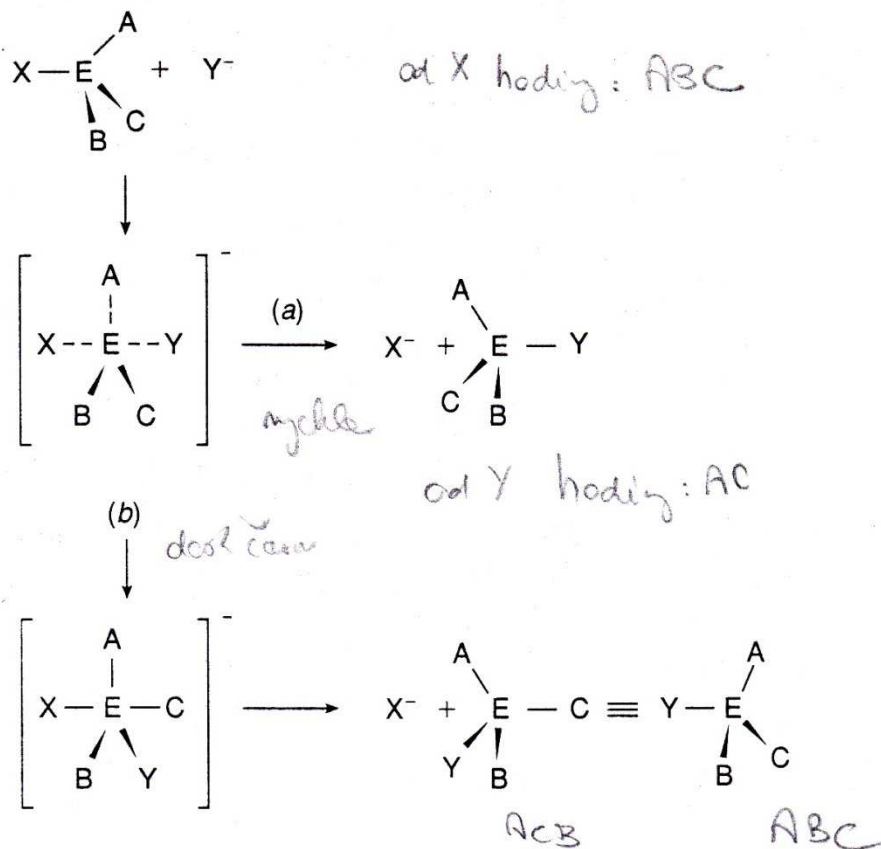 A
X — E + Y⁻ od X hodiny: ABC
B C
A
X E Y ⁻
B C
(a)
rychle
A
X⁻ + E — Y
C B
od Y hodiny: AC
(b)
dost času
A
X — E — C ⁻
B Y
A
X⁻ + E — C ≡ Y — E
A
Y B
B C
ACB ABC